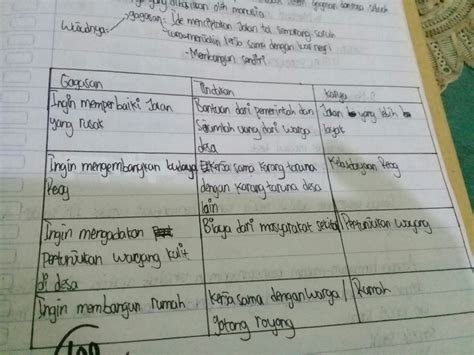 yang dihasilkan oleh manusia
gagasan: Ide menciptakan Jalan tol Semarang
Wujudnya:
kerja sama dengan luar negri
- Membangun sendiri
Gagasan Tindakan Karya
Ingin memperbaiki Jalan Bantuan dari pemerintah dan Jalan yang lebih
yang rusak Sejumlah uang dari warga
desa
Ingin mengembangkan budaya Kerja sama karang taruna Kebudayaan Reog
Reog dengan karang taruna desa
lain
Ingin mengadakan Biaya dari masyarakat sekitar Pertunjukan wayang
Pertunjukan wayang kulit
di desa
Ingin membangun rumah Kerja sama dengan warga / Rumah
gotong royong
100